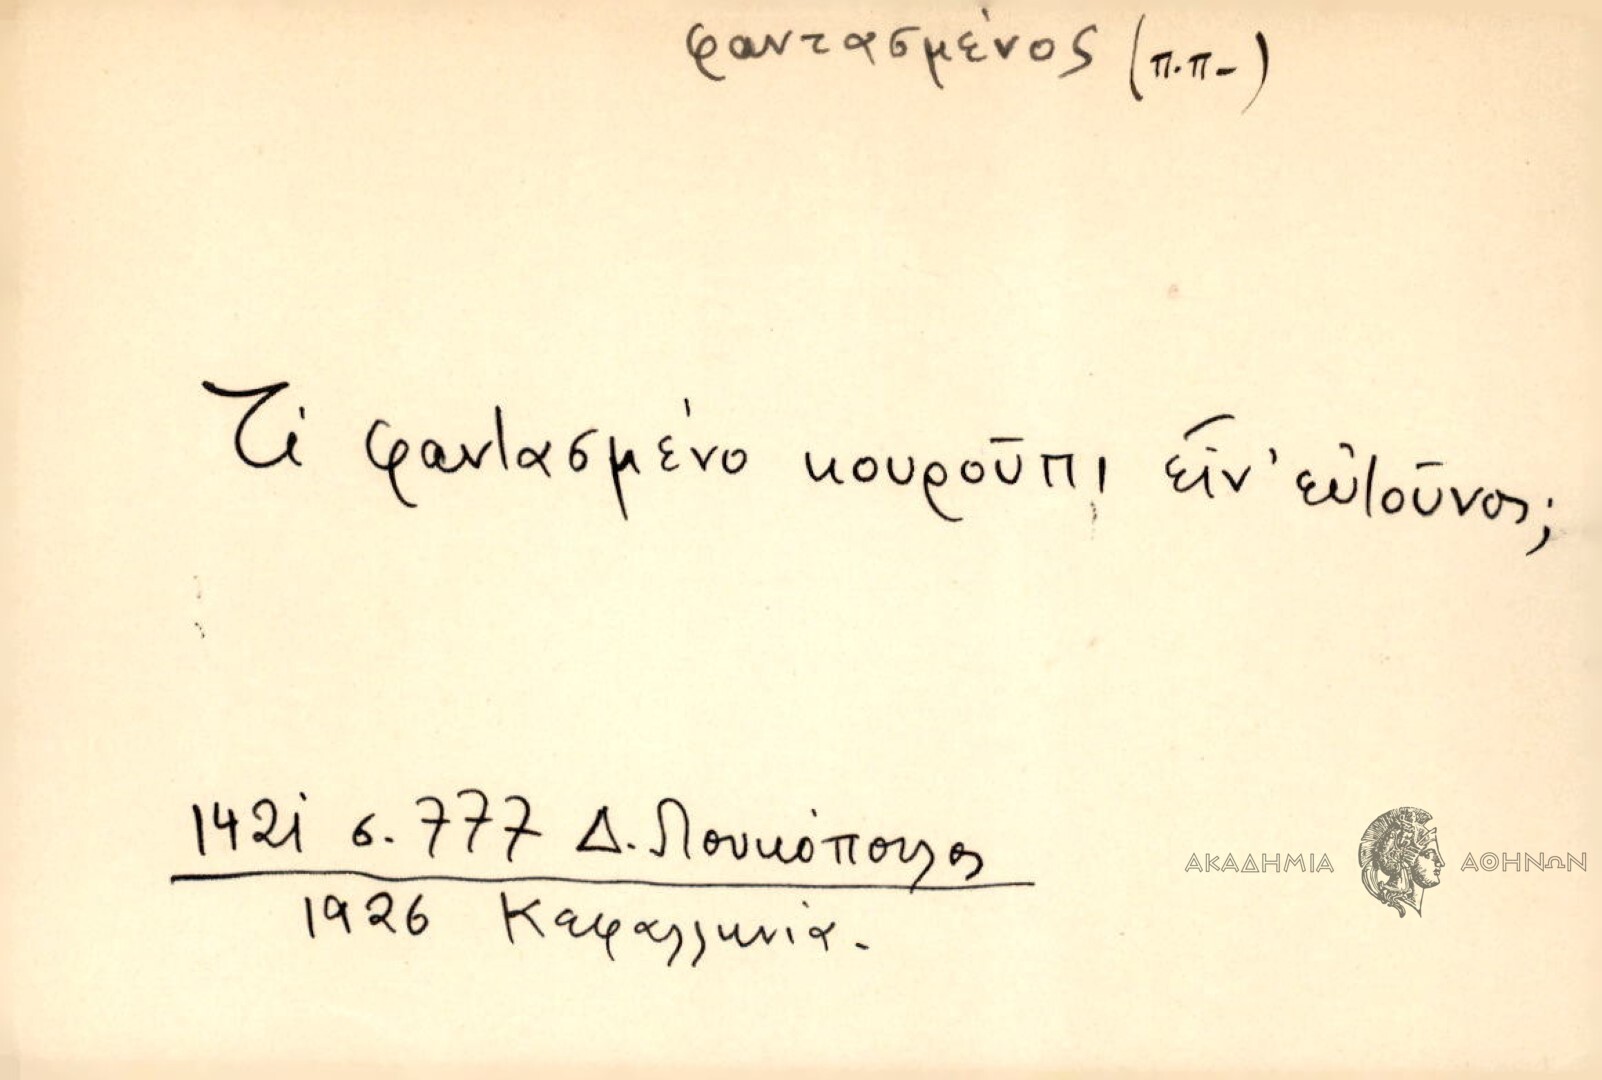 φαντασμένος (π.π-)
Τί φαντασμένο κουροῦπι εἶν' εὐτοῦνος;
1421 σ. 777 Δ. Λουκόπουλος
1926 Κεφαλληνία.
ΑΚΑΔΗΜΙΑ ΑΘΗΝΩΝ